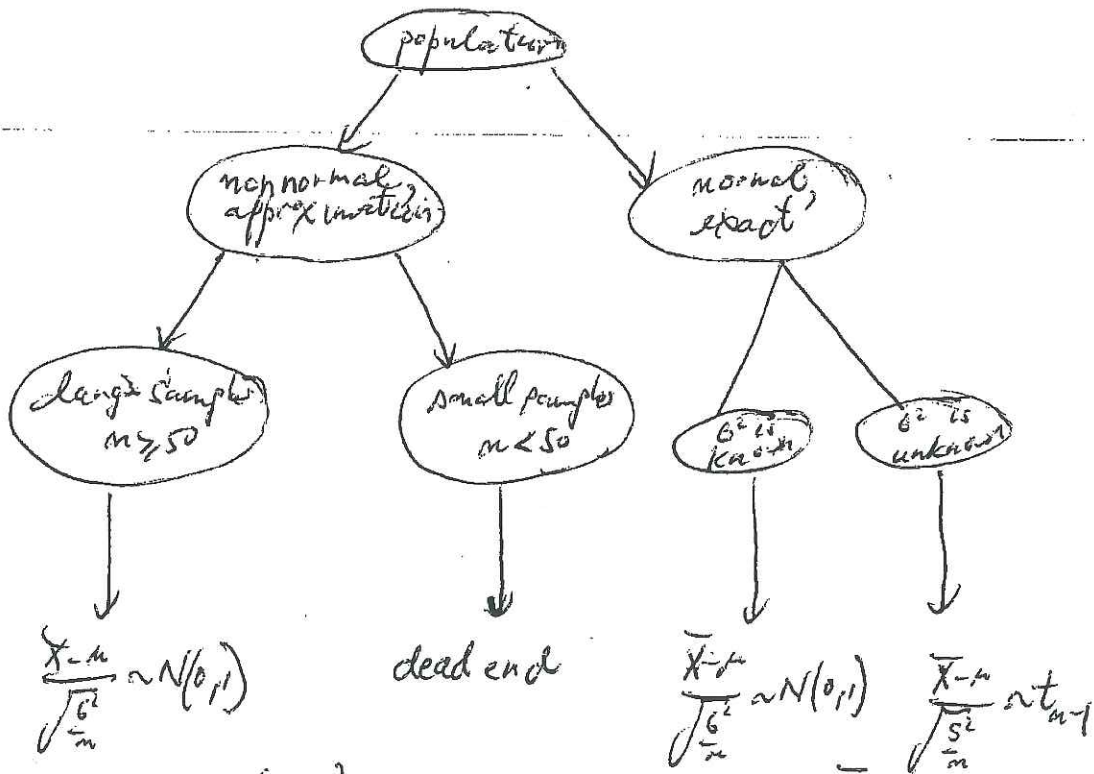 population
nonnormal,
approximation
normal,
exact
large samples
n ≥ 50
small samples
n < 50
σ² is
known
σ² is
unknown
X̄-μ / √(σ²/n) ~ N(0,1)
dead end
X̄-μ / √(σ²/n) ~ N(0,1)
X̄-μ / √(S²/n) ~ t n-1